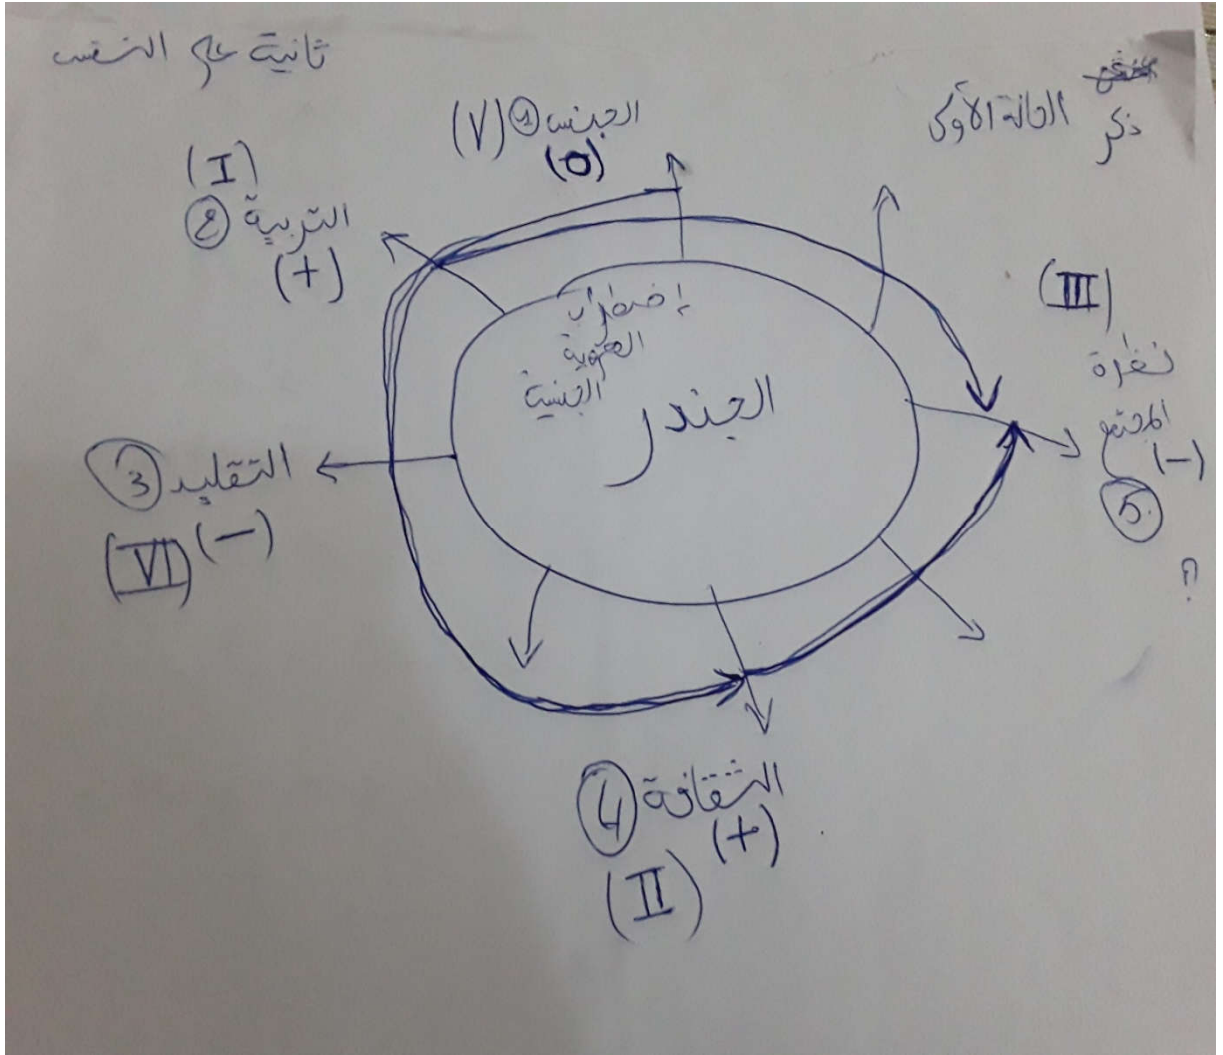 ثانية علم النفس
ذكر
الحالة الأولى
الجنس ① (V)
(O)
(I)
التربية ②
(+)
(III)
نظرة
المجتمع
(-)
⑤
إضطراب
الهوية
الجنسية
الجندر
التقليد ③
(-) (VI)
الثقافة ④
(+)
(II)